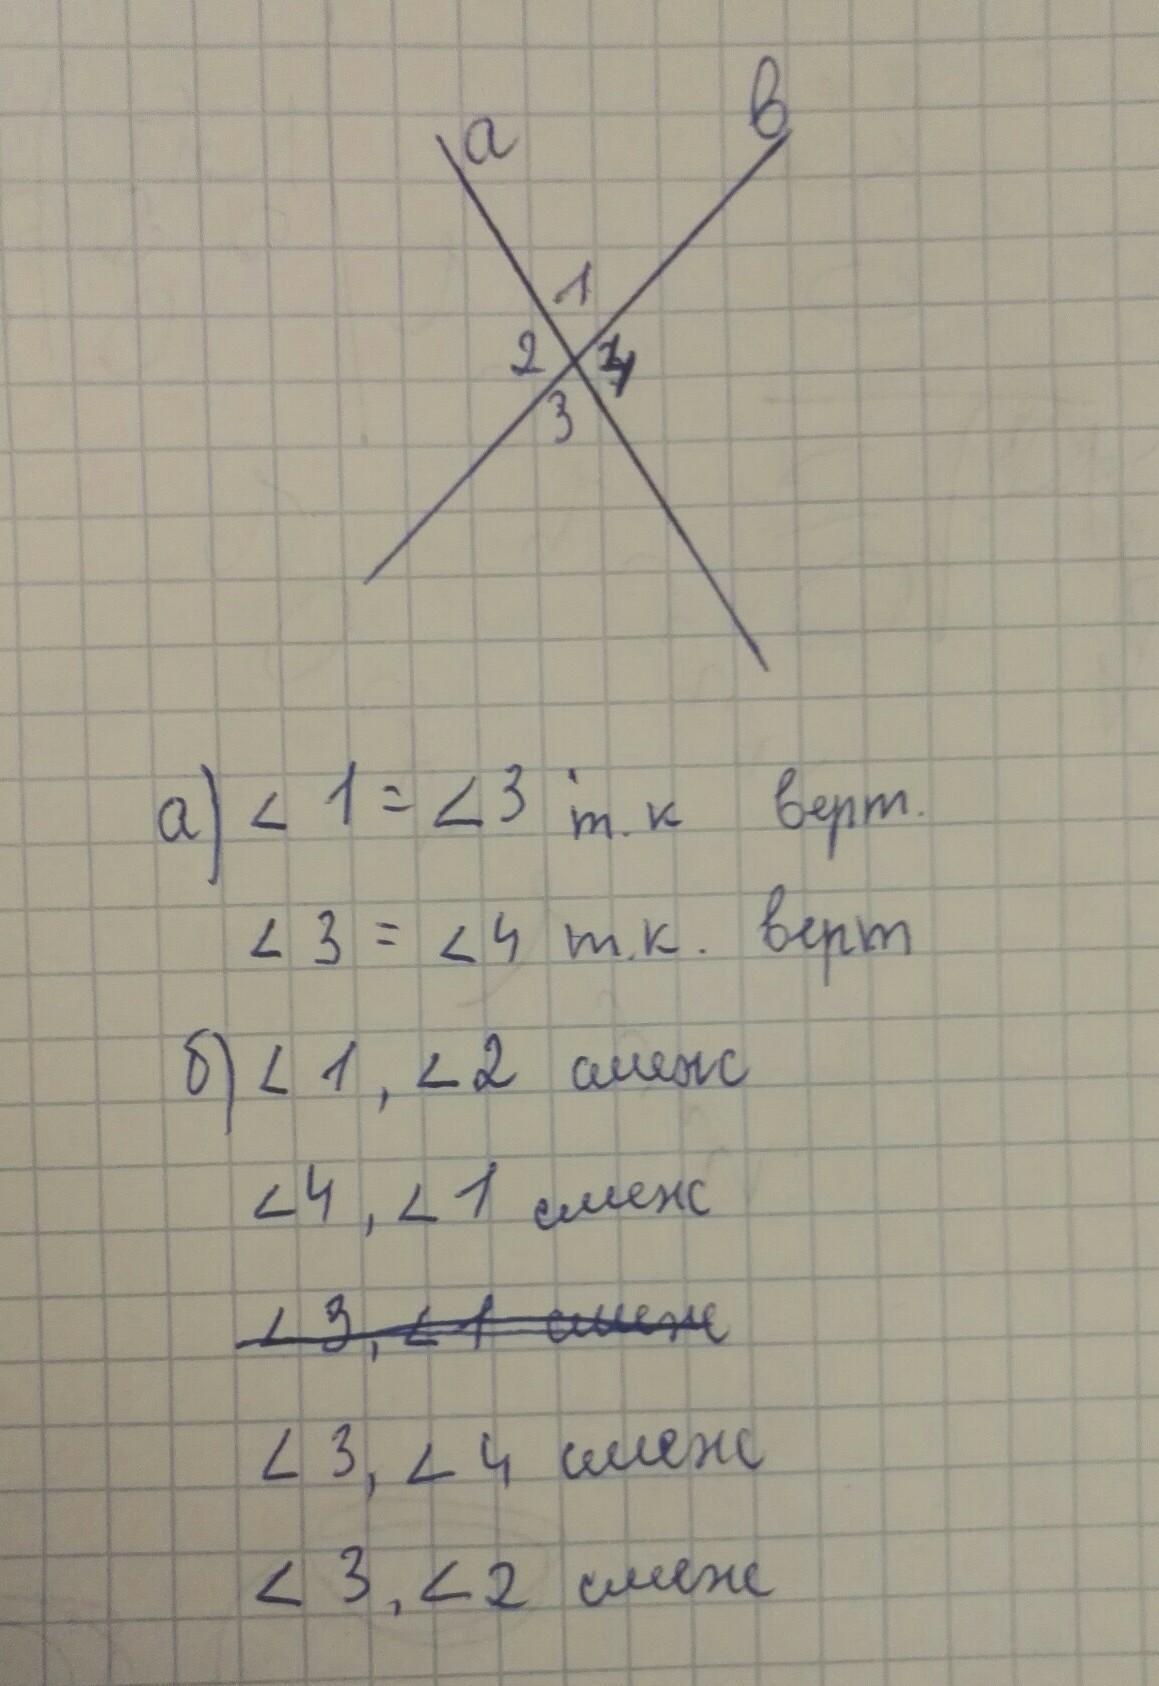 а в
1
2 4
3
а) ∠1 = ∠3 т.к верт.
∠3 = ∠4 т.к. верт
б) ∠1, ∠2 смеж
∠4, ∠1 смеж
∠3, ∠1 смеж
∠3, ∠4 смеж
∠3, ∠2 смеж